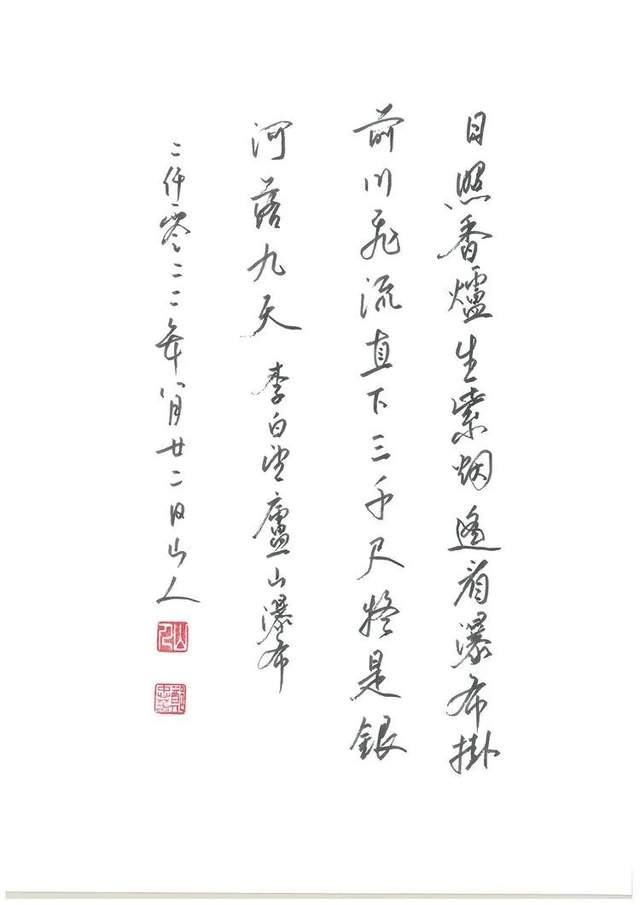 日照香爐生紫烟遙看瀑布掛
前川飛流直下三千尺疑是銀
河落九天 李白望廬山瀑布
二仟零二二年八月廿二日山人
山人